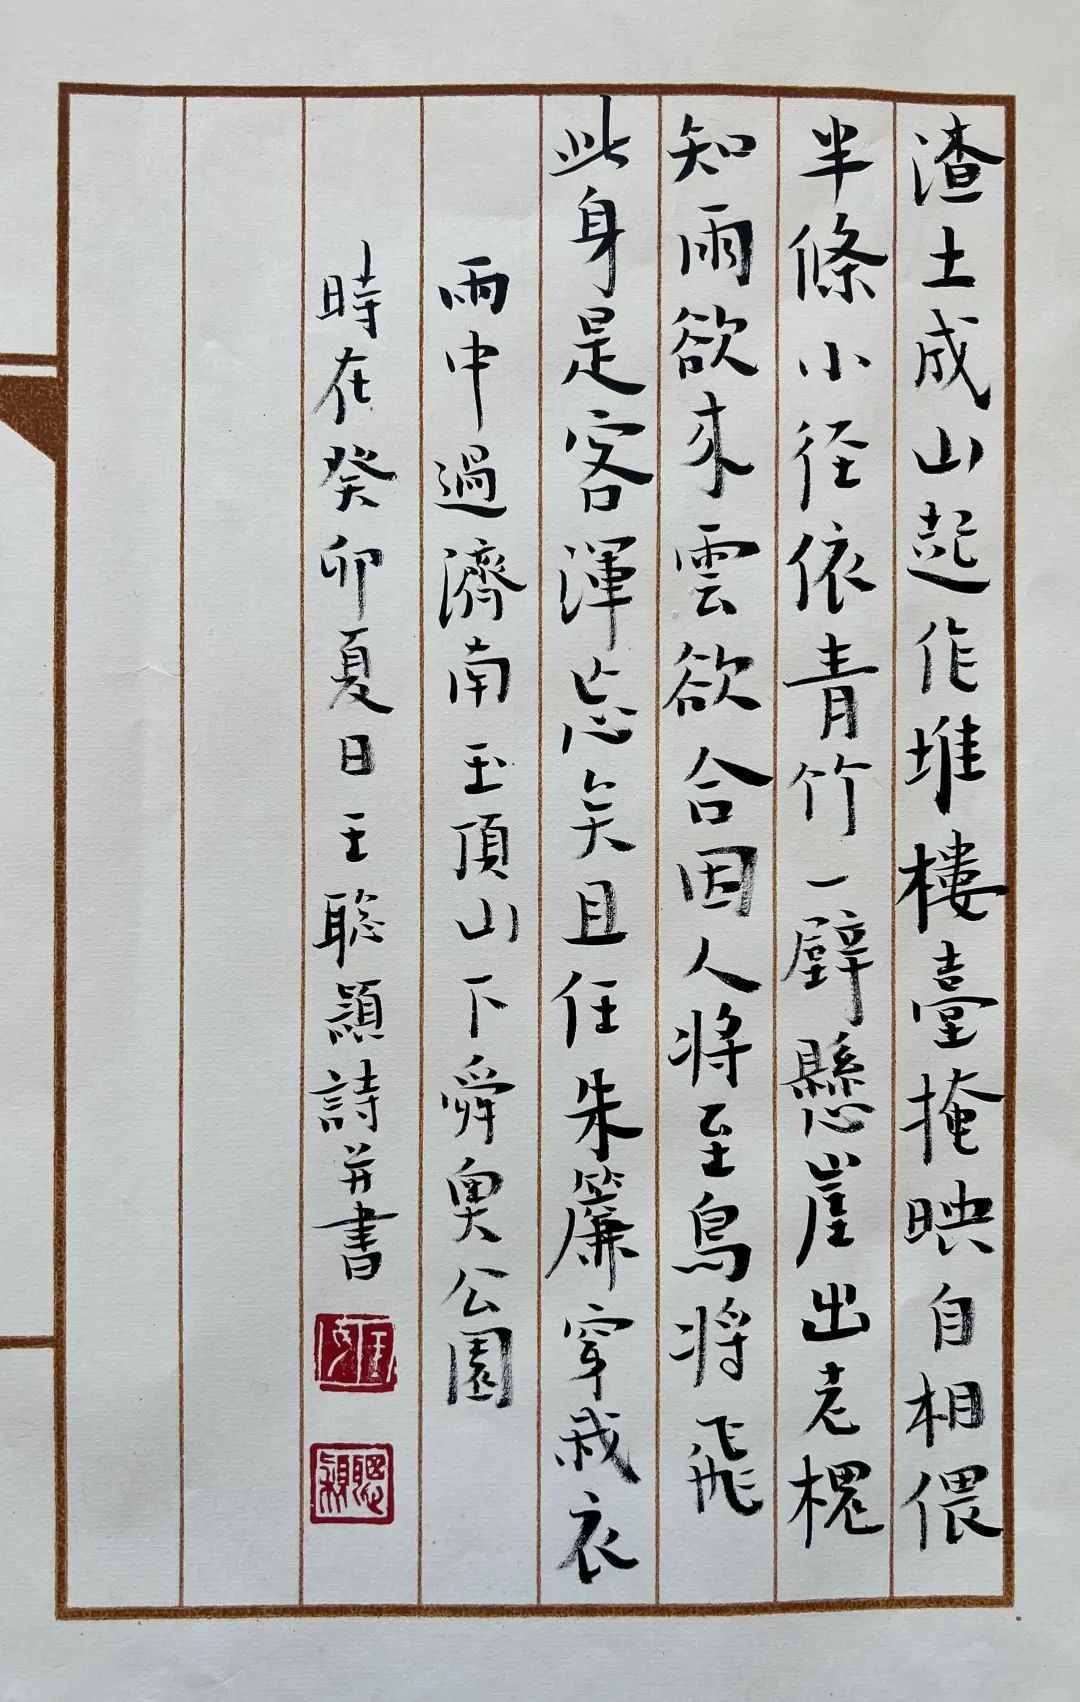 渣土成山起作堆樓臺掩映自相偎
半條小径依青竹一壁懸崖出老槐
知雨欲來雲欲合因人将至鳥将飛
此身是客渾忘矣且任朱簾穿我衣
雨中過濟南玉頂山下舜奥公園
時在癸卯夏日王聪穎詩并書
王
聰穎